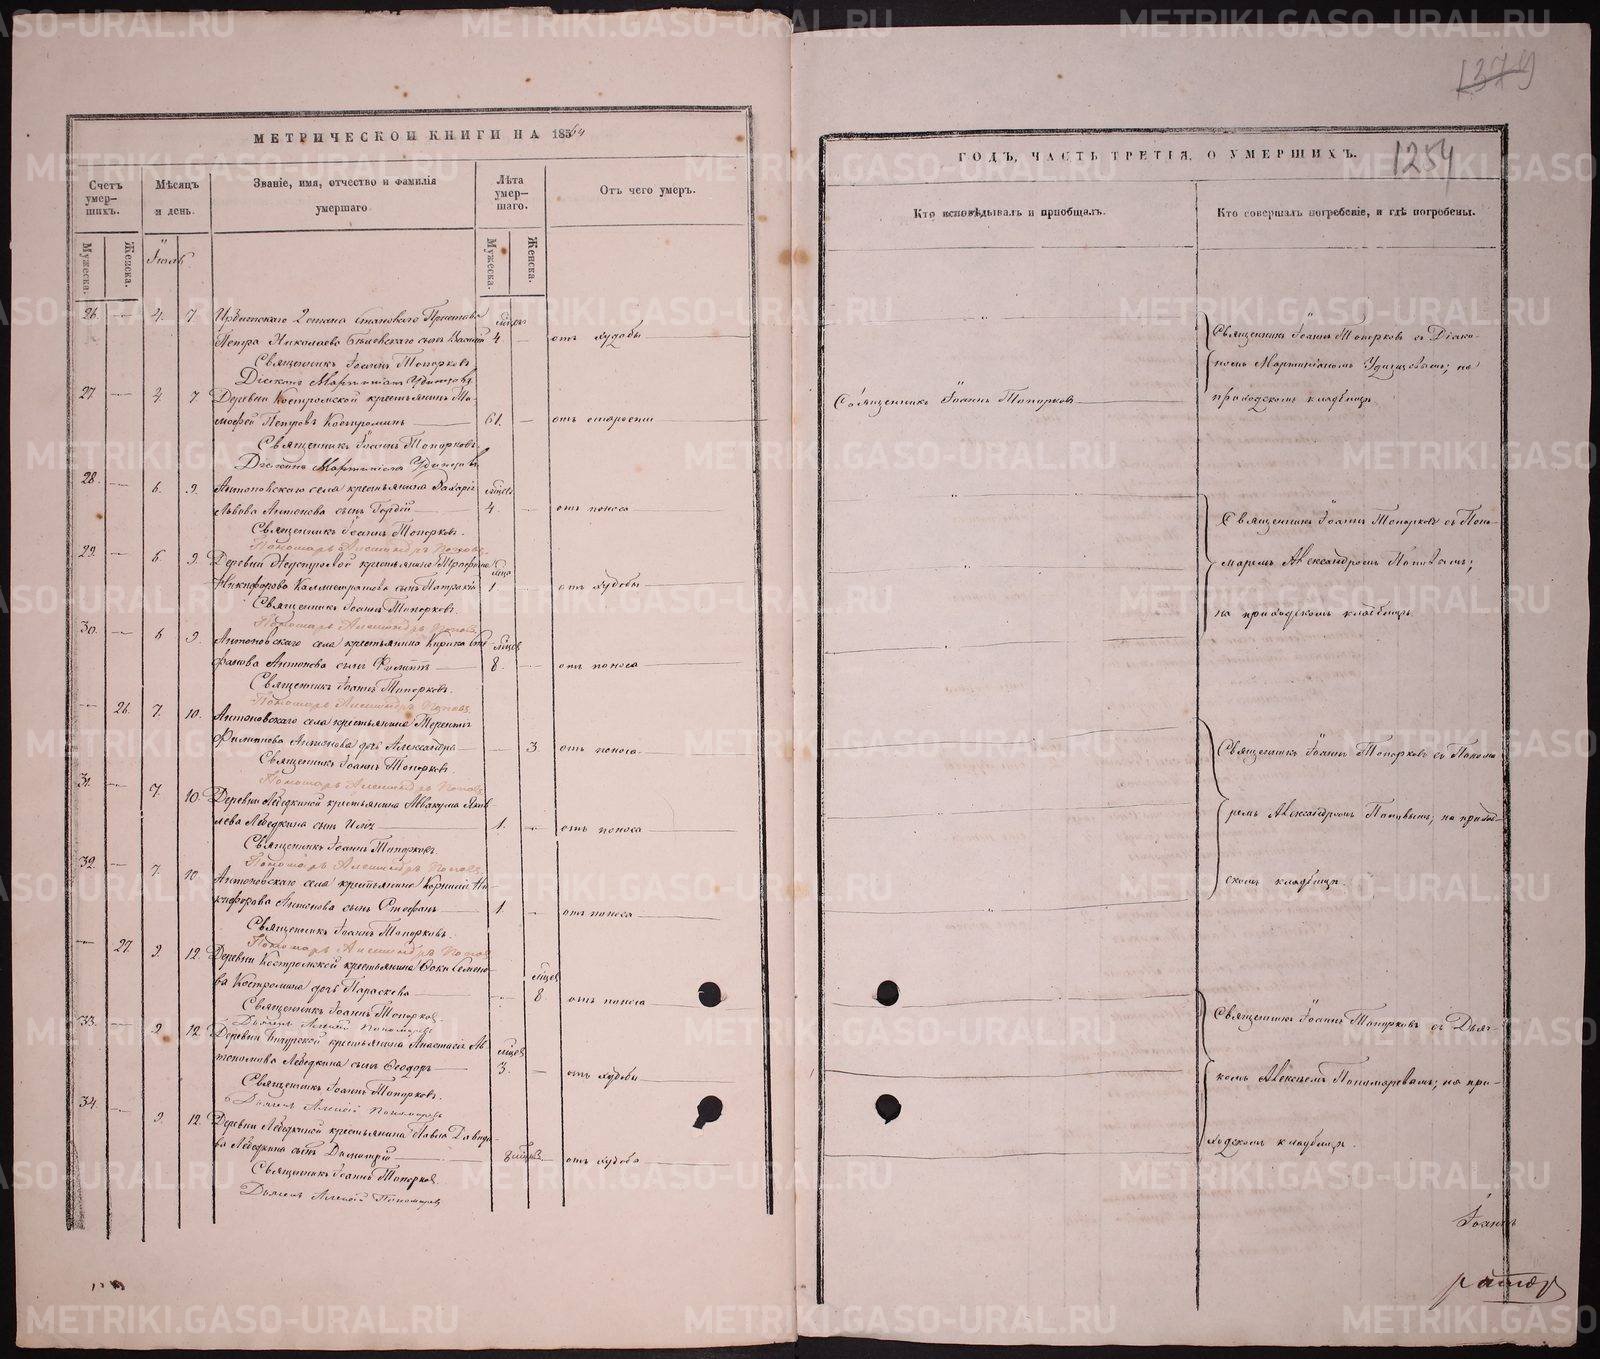 МЕТРИЧЕСКОЙ КНИГИ НА 1864
Счетъ умер-
шихъ.
Мѣсяцъ
и день.
Званіе, имя, отчество и фамилія
умершаго
Лѣта
умер-
шаго.
Отъ чего умеръ.
Мужеска.
Женска.
Мужеска.
Женска.
Іюль
26. 4. 7. Ирбитскаго 2 стана Становаго Пристава мѣсяц
Петра Николаева сынъ 4 отъ худобы
Священникъ Іоаннъ Топорковъ
Діаконъ Мартиніанъ Удинцовъ
27. 4. 7 Деревни Костромской крестьянинъ Ти-
мофей Петровъ Костроминъ 61. отъ старости
Священникъ Іоаннъ Топорковъ
Діаконъ Мартиніанъ Удинцовъ
28. 6. 9. Антоновскаго села крестьянина Захаріи мѣсяц
Львова Антонова сынъ Гордій 4. отъ поноса
Священникъ Іоаннъ Топорковъ.
Пономарь Александръ Поповъ
29. 6 9. Деревни крестьянина
Никифорова Каллистратова сынъ 1 отъ худобы
Священникъ Іоаннъ Топорковъ.
Пономарь Александръ Поповъ
30. 6 9. Антоновскаго села крестьянина Кирика Сте- мѣсяц
фанова Антонова сынъ Филиппъ 8. отъ поноса
Священникъ Іоаннъ Топорковъ.
Пономарь Александръ Поповъ
26. 7. 10. Антоновскаго села крестьянина Терентія
Филиппова Антонова дочь Александра 3 отъ поноса
Священникъ Іоаннъ Топорковъ.
Пономарь Александръ Поповъ
31. 7. 10. Деревни Лебедкиной крестьянина Аввакума Яков-
лева Лебедкина сынъ Илія 1. отъ поноса
Священникъ Іоаннъ Топорковъ
Пономарь Александръ Поповъ
32. 7. 10. Антоновскаго села крестьянина Корнилія Ни-
кифорова Антонова сынъ Стефанъ 1. отъ поноса
Священникъ Іоаннъ Топорковъ.
Пономарь Александръ Поповъ
27. 9. 12. Деревни Костромской крестьянина Фоки Семено- мѣсяц
ва Костромина дочь Параскева 8 отъ поноса
Священникъ Іоаннъ Топорковъ
Дьячекъ Алексій Пономаревъ
33. 9. 12. Деревни крестьянина Анастасія Ав- мѣсяц
тономова Лебедкина сынъ Ѳеодоръ 3. отъ худобы
Священникъ Іоаннъ Топорковъ.
Дьячекъ Алексій Пономаревъ
34. 9. 12. Деревни Лебедкиной крестьянина Павла Давидо-
ва Лебедкина сынъ Димитрій 8 отъ худобы
Священникъ Іоаннъ Топорковъ
Дьячекъ Алексій Пономаревъ
1379
ГОДЪ, ЧАСТЬ ТРЕТІЯ, О УМЕРШИХЪ.
1254
Кто исповѣдывалъ и пріобщалъ.
Кто совершалъ погребеніе, и гдѣ погребены.
Священникъ Іоаннъ Топорковъ
Священникъ Іоаннъ Топорковъ съ Діако-
номъ Мартиніаномъ Удинцовымъ; на
приходскомъ кладбищѣ
Священникъ Іоаннъ Топорковъ съ Поно-
маремъ Александромъ Поповымъ;
на приходскомъ кладбищѣ.
Священникъ Іоаннъ Топорковъ съ Понома-
ремъ Александромъ Поповымъ; на приход-
скомъ кладбищѣ.
Священникъ Іоаннъ Топорковъ съ Дьяч-
комъ Алексѣемъ Пономаревымъ; на при-
ходскомъ кладбищѣ.
Іоаннъ
METRIKI.GASO-URAL.RU